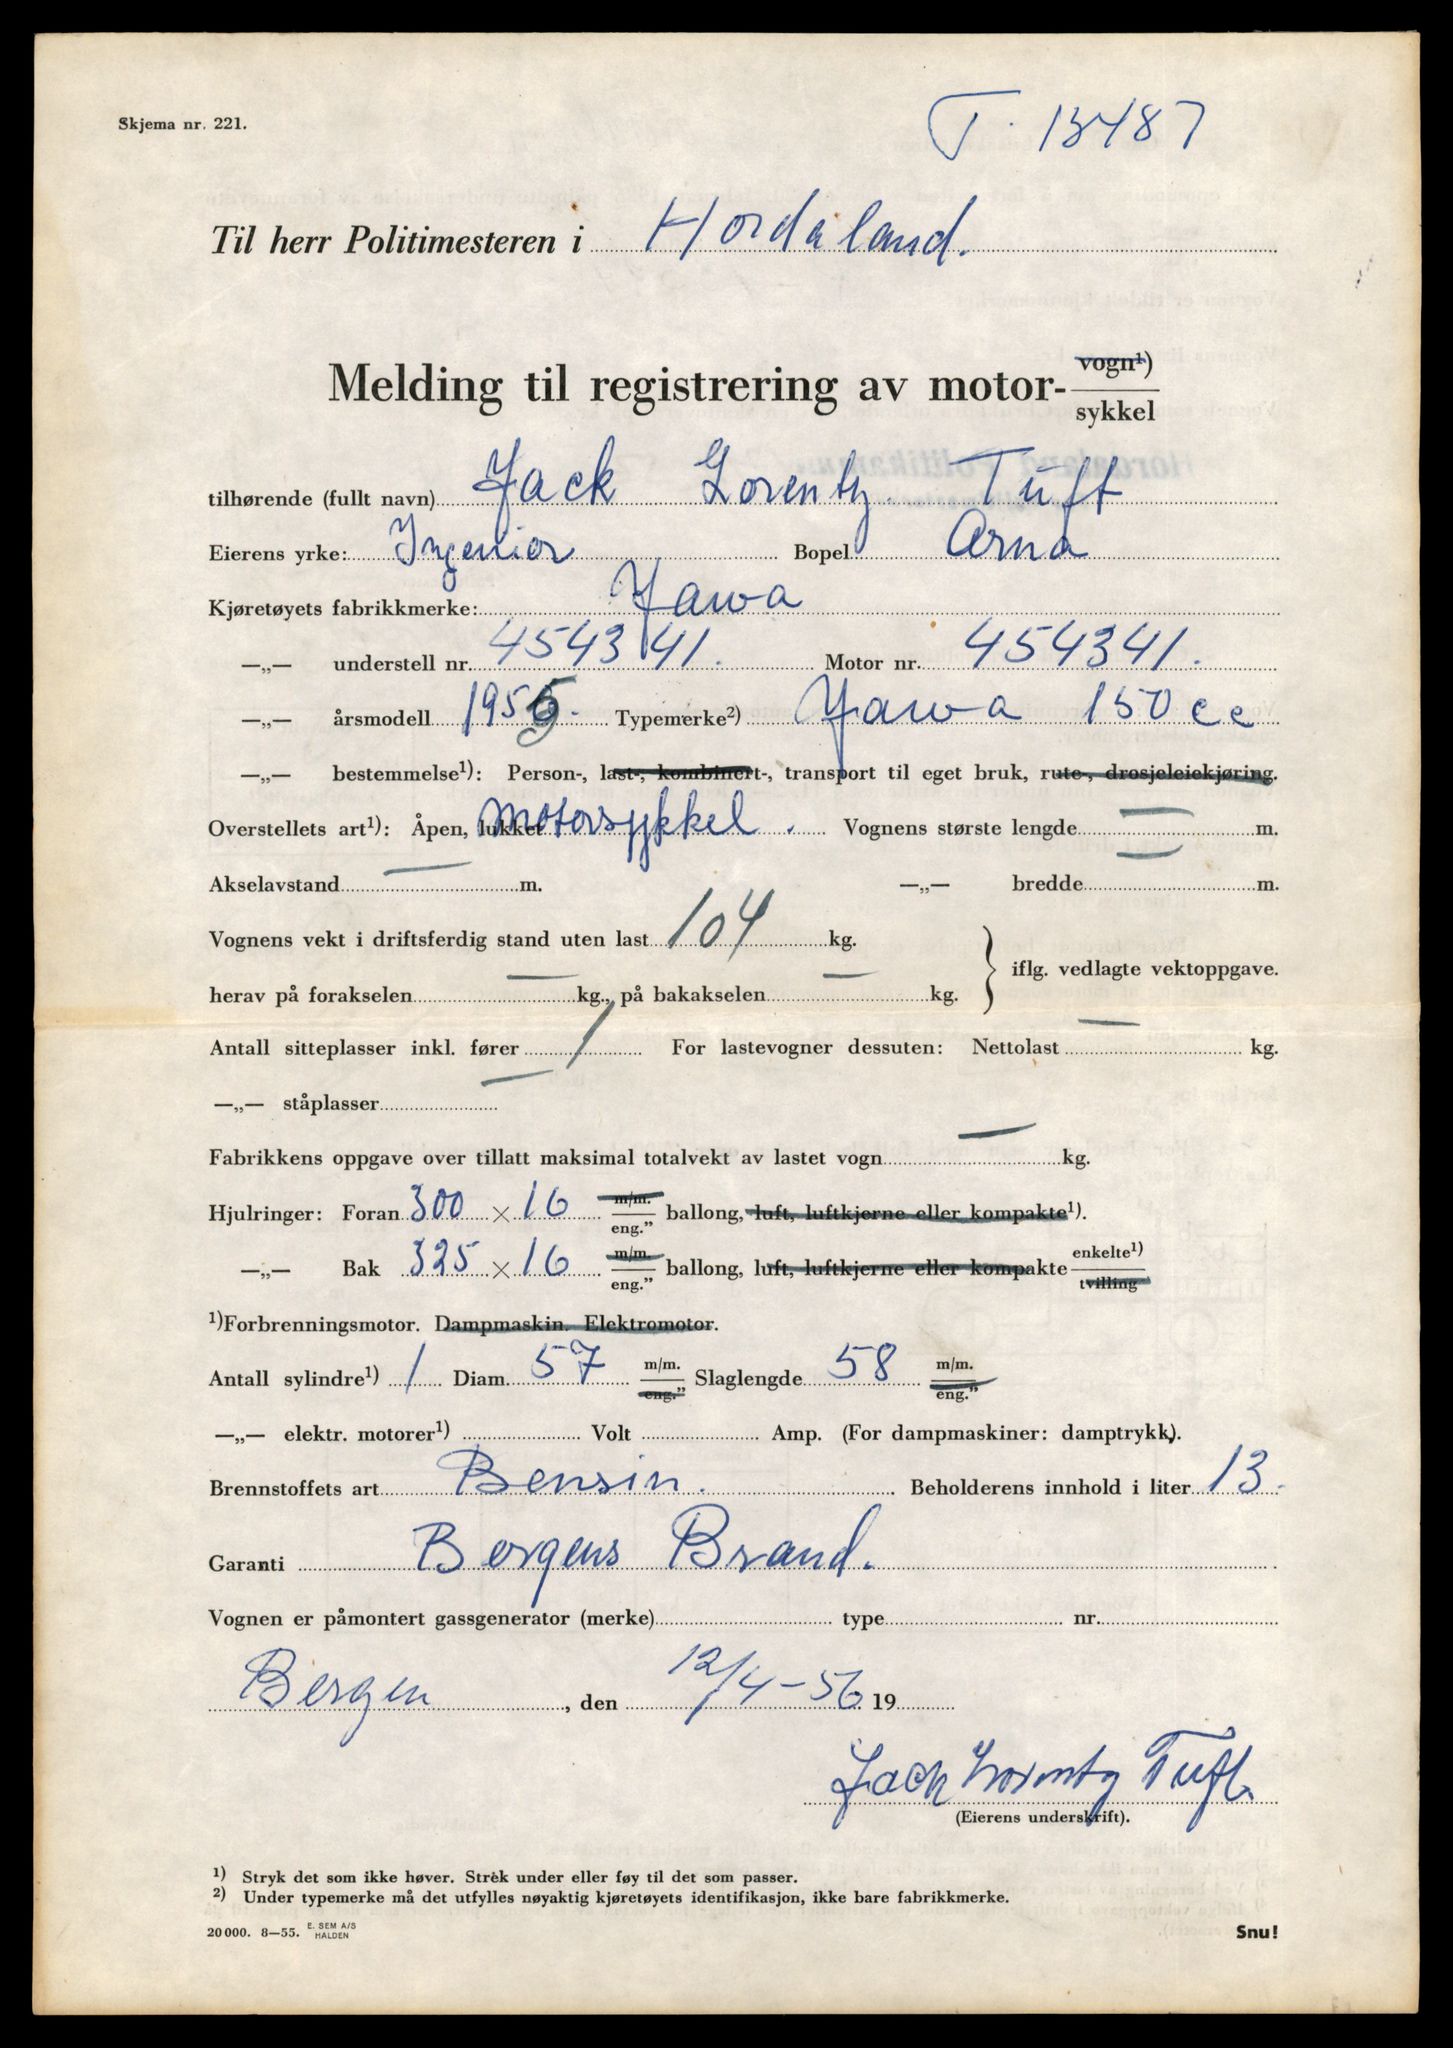 Skjema nr. 221.
T. 13487
Til herr Politimesteren i Hordaland.
Melding til registrering av motor- vogn¹) / sykkel
tilhørende (fullt navn) Jack Lorentz Tuft
Eierens yrke: Ingeniør Bopel Arna
Kjøretøyets fabrikkmerke: Jawa
—„— understell nr. 454341. Motor nr. 454341.
—„— årsmodell 1955. Typemerke²) Jawa 150 cc
—„— bestemmelse¹): Person-, last-, kombinert-, transport til eget bruk, rute-, drosjeleiekjøring.
Overstellets art¹): Åpen, lukket motorsykkel. Vognens største lengde — m.
Akselavstand — m. —„— bredde — m.
Vognens vekt i driftsferdig stand uten last 104 kg.
iflg. vedlagte vektoppgave.
herav på forakselen — kg., på bakakselen — kg.
Antall sitteplasser inkl. fører 1 For lastevogner dessuten: Nettolast — kg.
—„— ståplasser —
Fabrikkens oppgave over tillatt maksimal totalvekt av lastet vogn — kg.
Hjulringer: Foran 300 × 16 m/m. / eng.” ballong, luft, luftkjerne eller kompakte¹).
—„— Bak 325 × 16 m/m. / eng.” ballong, luft, luftkjerne eller kompakte enkelte¹) / tvilling
¹)Forbrenningsmotor. Dampmaskin. Elektromotor.
Antall sylindre¹) 1 Diam. 57 m/m. / eng.” Slaglengde 58 m/m. / eng.”
—„— elektr. motorer¹) Volt Amp. (For dampmaskiner: damptrykk).
Brennstoffets art Bensin. Beholderens innhold i liter 13.
Garanti Bergens Brand.
Vognen er påmontert gassgenerator (merke) type nr.
Bergen, den 12/4-56 19
Jack Lorentz Tuft.
(Eierens underskrift).
¹) Stryk det som ikke høver. Strek under eller føy til det som passer.
²) Under typemerke må det utfylles nøyaktig kjøretøyets identifikasjon, ikke bare fabrikkmerke.
20 000. 8—55. E. SEM A/S HALDEN Snu!